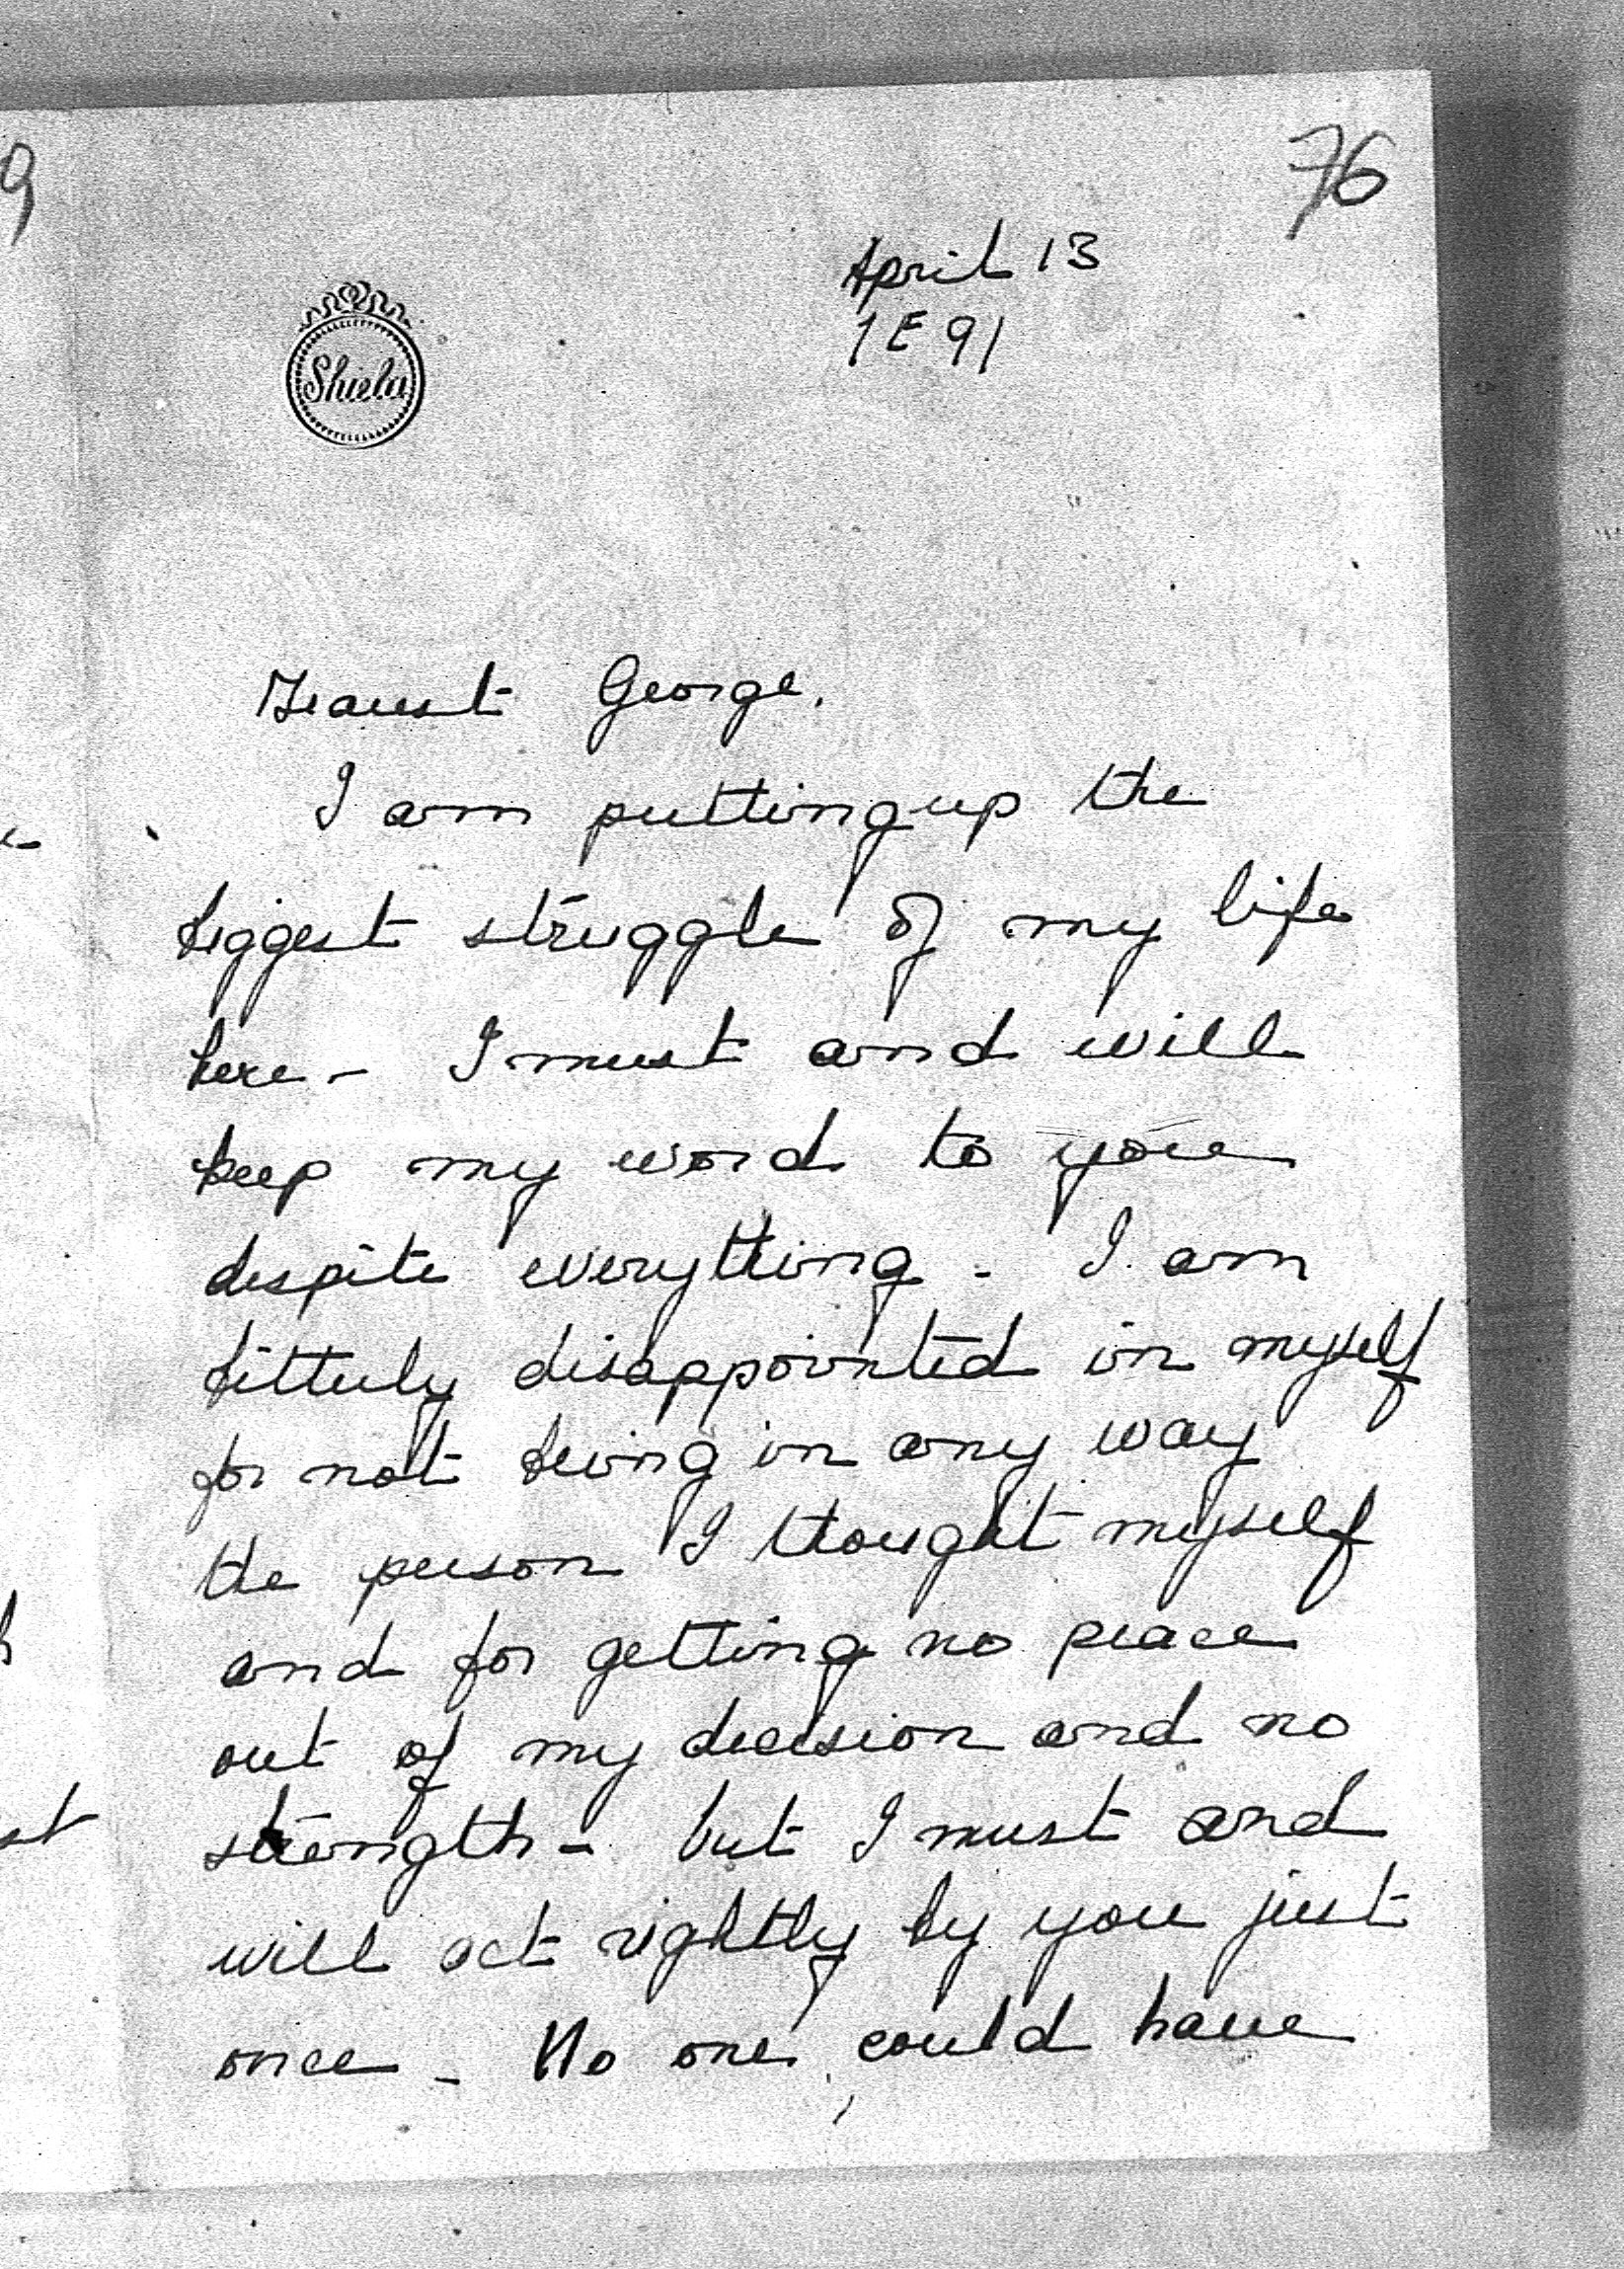 76
April 13
1 E 91
Shiela
Dearest George.
I am putting up the
biggest struggle of my life
here - I must and will
keep my word to you
despite everything - I am
bitterly disappointed in myself
for not being in any way
the person I thought myself
and for getting no peace
out of my decision and no
strength - but I must and
will act rightly by you just
once - No one could have